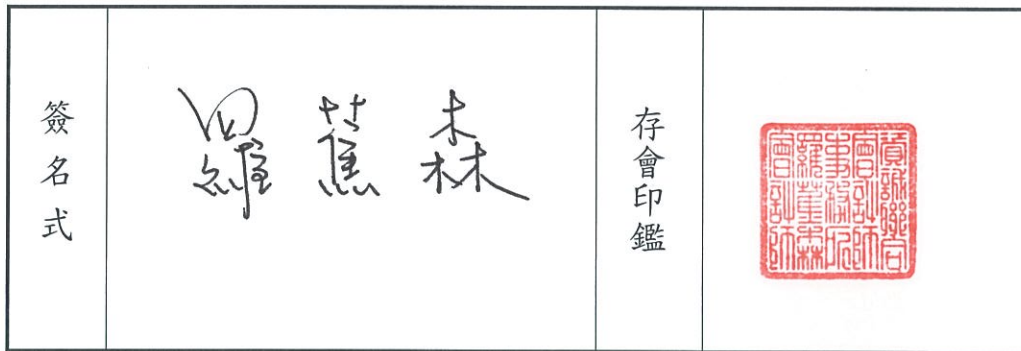 簽名式
羅蕉森
存會印鑑
貿誠聯合
會計師
事務所
羅蕉森
會計師